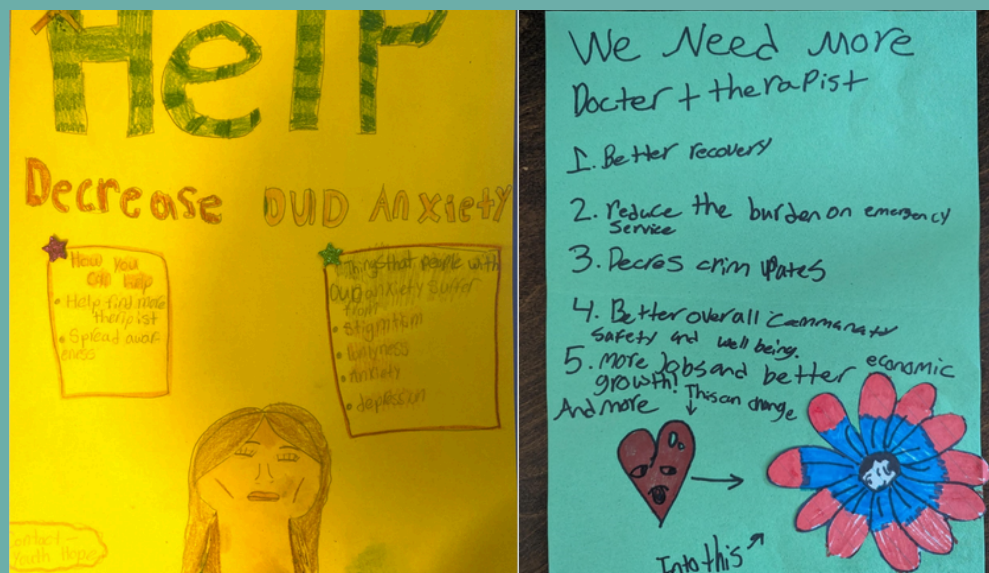 Help
Decrease OUD Anxiety
How you
can help
• Help find more
theripist
• Spread awar-
eness
Things that people with
OUD anxiety suffer
from
• Stigmtism
• Anxiety
• depression
Contact-
Youth Hope
We Need more
Docter + therapist
1. Better recovery
2. reduce the burden on emergency
service
3. Decres crim
4. Better overall
safety and well being.
5. more Jobs and better economic
growth!
And more
This can change
Into this